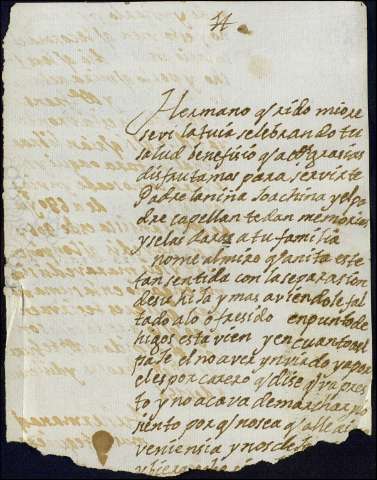 Hermano qrido mio re
sevi la tuia selebrando tu
salud benefisio q a Ds grasias
disfrutamos para servirte
Padre la niña Joachina y el pa
dre capellan te dan memorias
y se las daras a tu familia
no me almiro q anita este
tan sentida con la separasion
de su hija y mas aviendole fal
tado a lo ofresido en punto de
higos esta vien y en cuanto
parte el no aver ynviado ya
el es por q dise q va pres
to y no acava de marchar
siento por q no sea q alle
veniensia y nos de